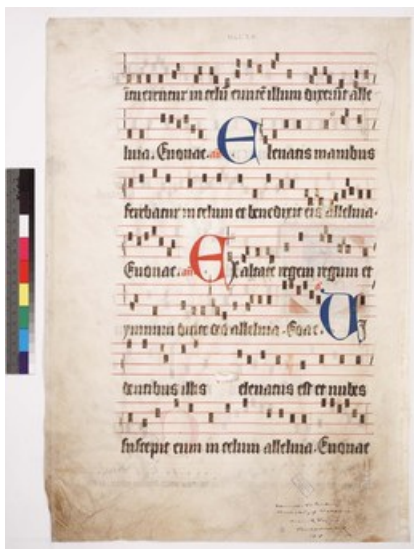 intuerentur in celū euntē illum dixerūt alle
luia. Euouae. añ Eleuatis manibus
ferebatur in celum et benedixit eis alleluia.
Euouae. añ Exaltate regem regum et
ymnum dicite deo alleluia. Euae. Vi
dentibus illis eleuatus est et nubes
suscepit eum in celum alleluia. Euouae